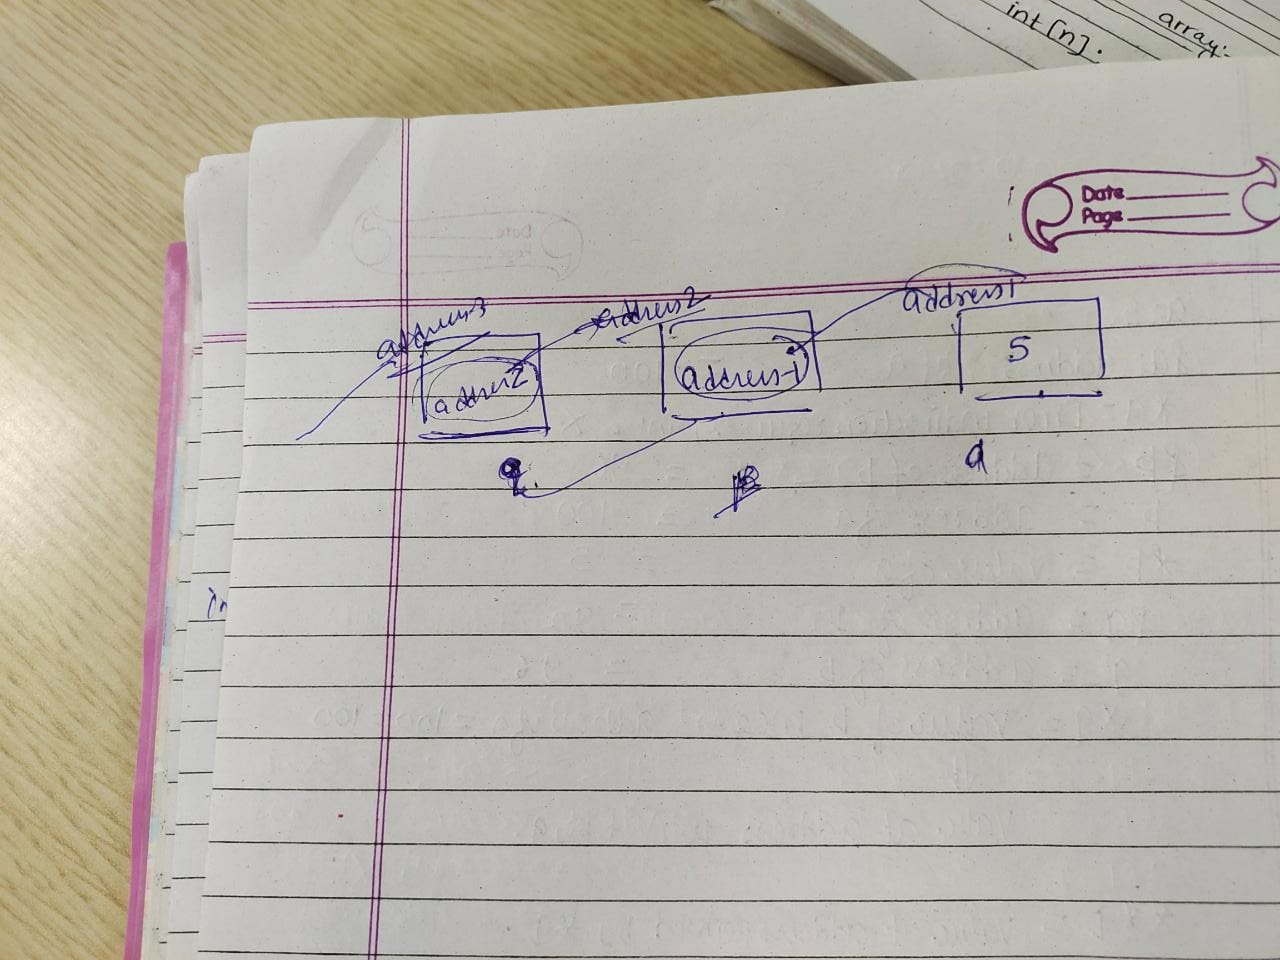 int [n].
array:
Date
Page
address3 address2 address1
address2 address-1 5
q. p a